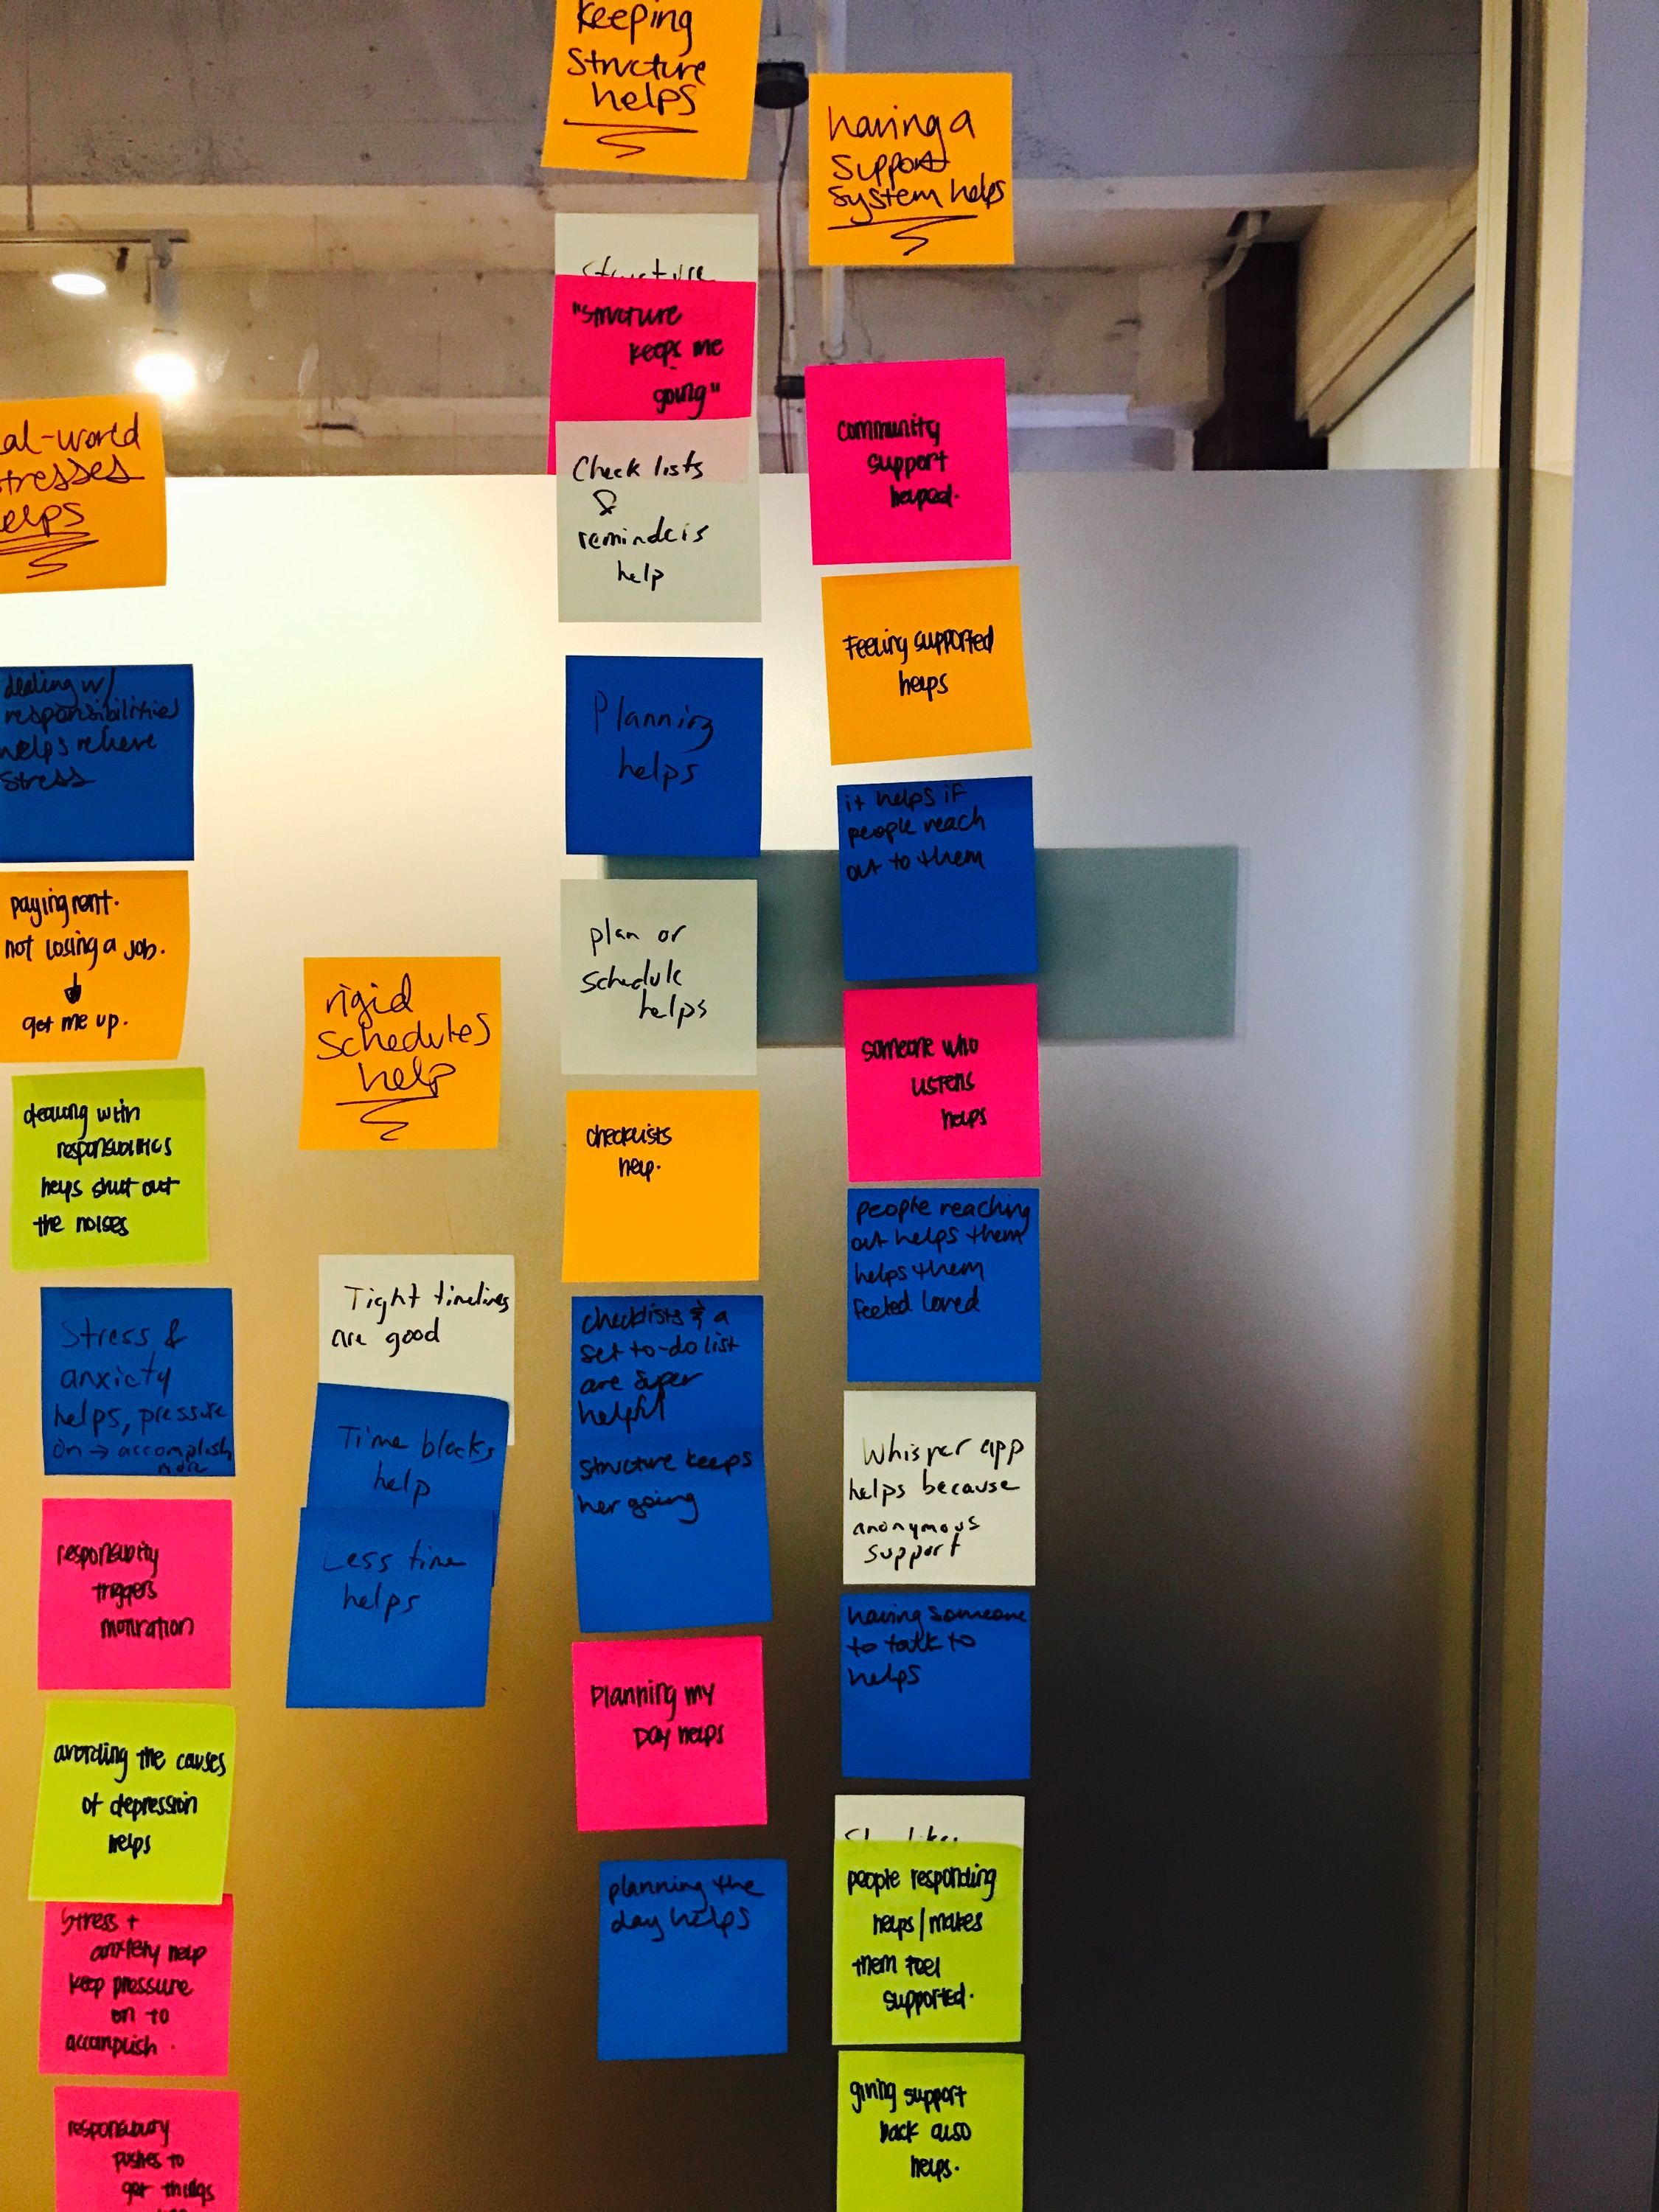 al-world
tresses
elps
dealing w/
responsibilities
helps relieve
stress
paying rent.
not losing a job.
↓
get me up.
dealing with
responsibilities
helps shut out
the noises
Stress &
anxiety
helps, pressure
on → accomplish
more
responsibility
triggers
motivation
avoiding the causes
of depression
helps
Stress +
anxiety help
keep pressure
on to
accomplish.
responsibility
pushes to
get things
rigid
schedules
help
Tight timelines
are good
Time blocks
help
Less time
helps
keeping
structure
helps
structure
"structure
keeps me
going"
Check lists
&
reminders
help
Planning
helps
plan or
schedule
helps
checklists
help.
checklists & a
set to-do list
are super
helpful
structure keeps
her going
Planning my
Day helps
planning the
day helps
having a
support
system helps
community
support
helped.
Feeling supported
helps
it helps if
people reach
out to them
someone who
listens
helps
people reaching
out helps them
helps them
feeled loved
Whisper app
helps because
anonymous
support
having someone
to talk to
helps
She likes
people responding
helps/makes
them feel
supported.
giving support
back also
helps.